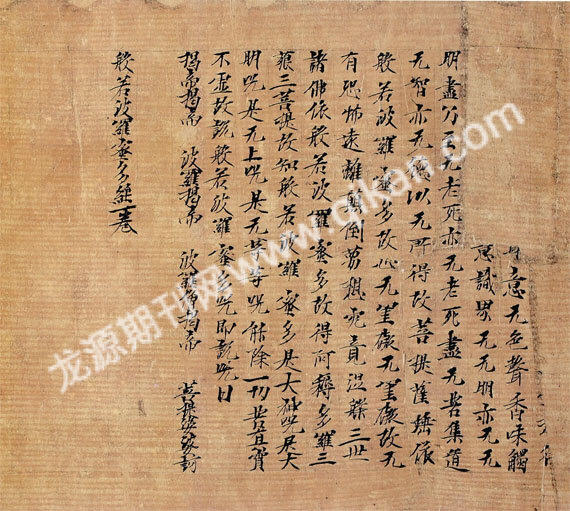 意无色聲香味觸
意識界无无明亦无无
明盡乃至无老死亦无老死盡无苦集道
无智亦无得以无所得故菩提薩埵依
般若波羅蜜多故心无罣礙无罣礙故无
有恐怖遠離顛倒夢想究竟涅槃三世
諸佛依般若波羅蜜多故得阿耨多羅三
藐三菩提故知般若波羅蜜多是大神咒是大
明咒是无上咒是无等等咒能除一切苦真實
不虛故說般若波羅蜜多咒即說咒曰
揭帝揭帝 波羅揭帝 波羅僧揭帝 菩提娑婆訶
般若波羅蜜多經一卷
龙源期刊网 www.qikan.com